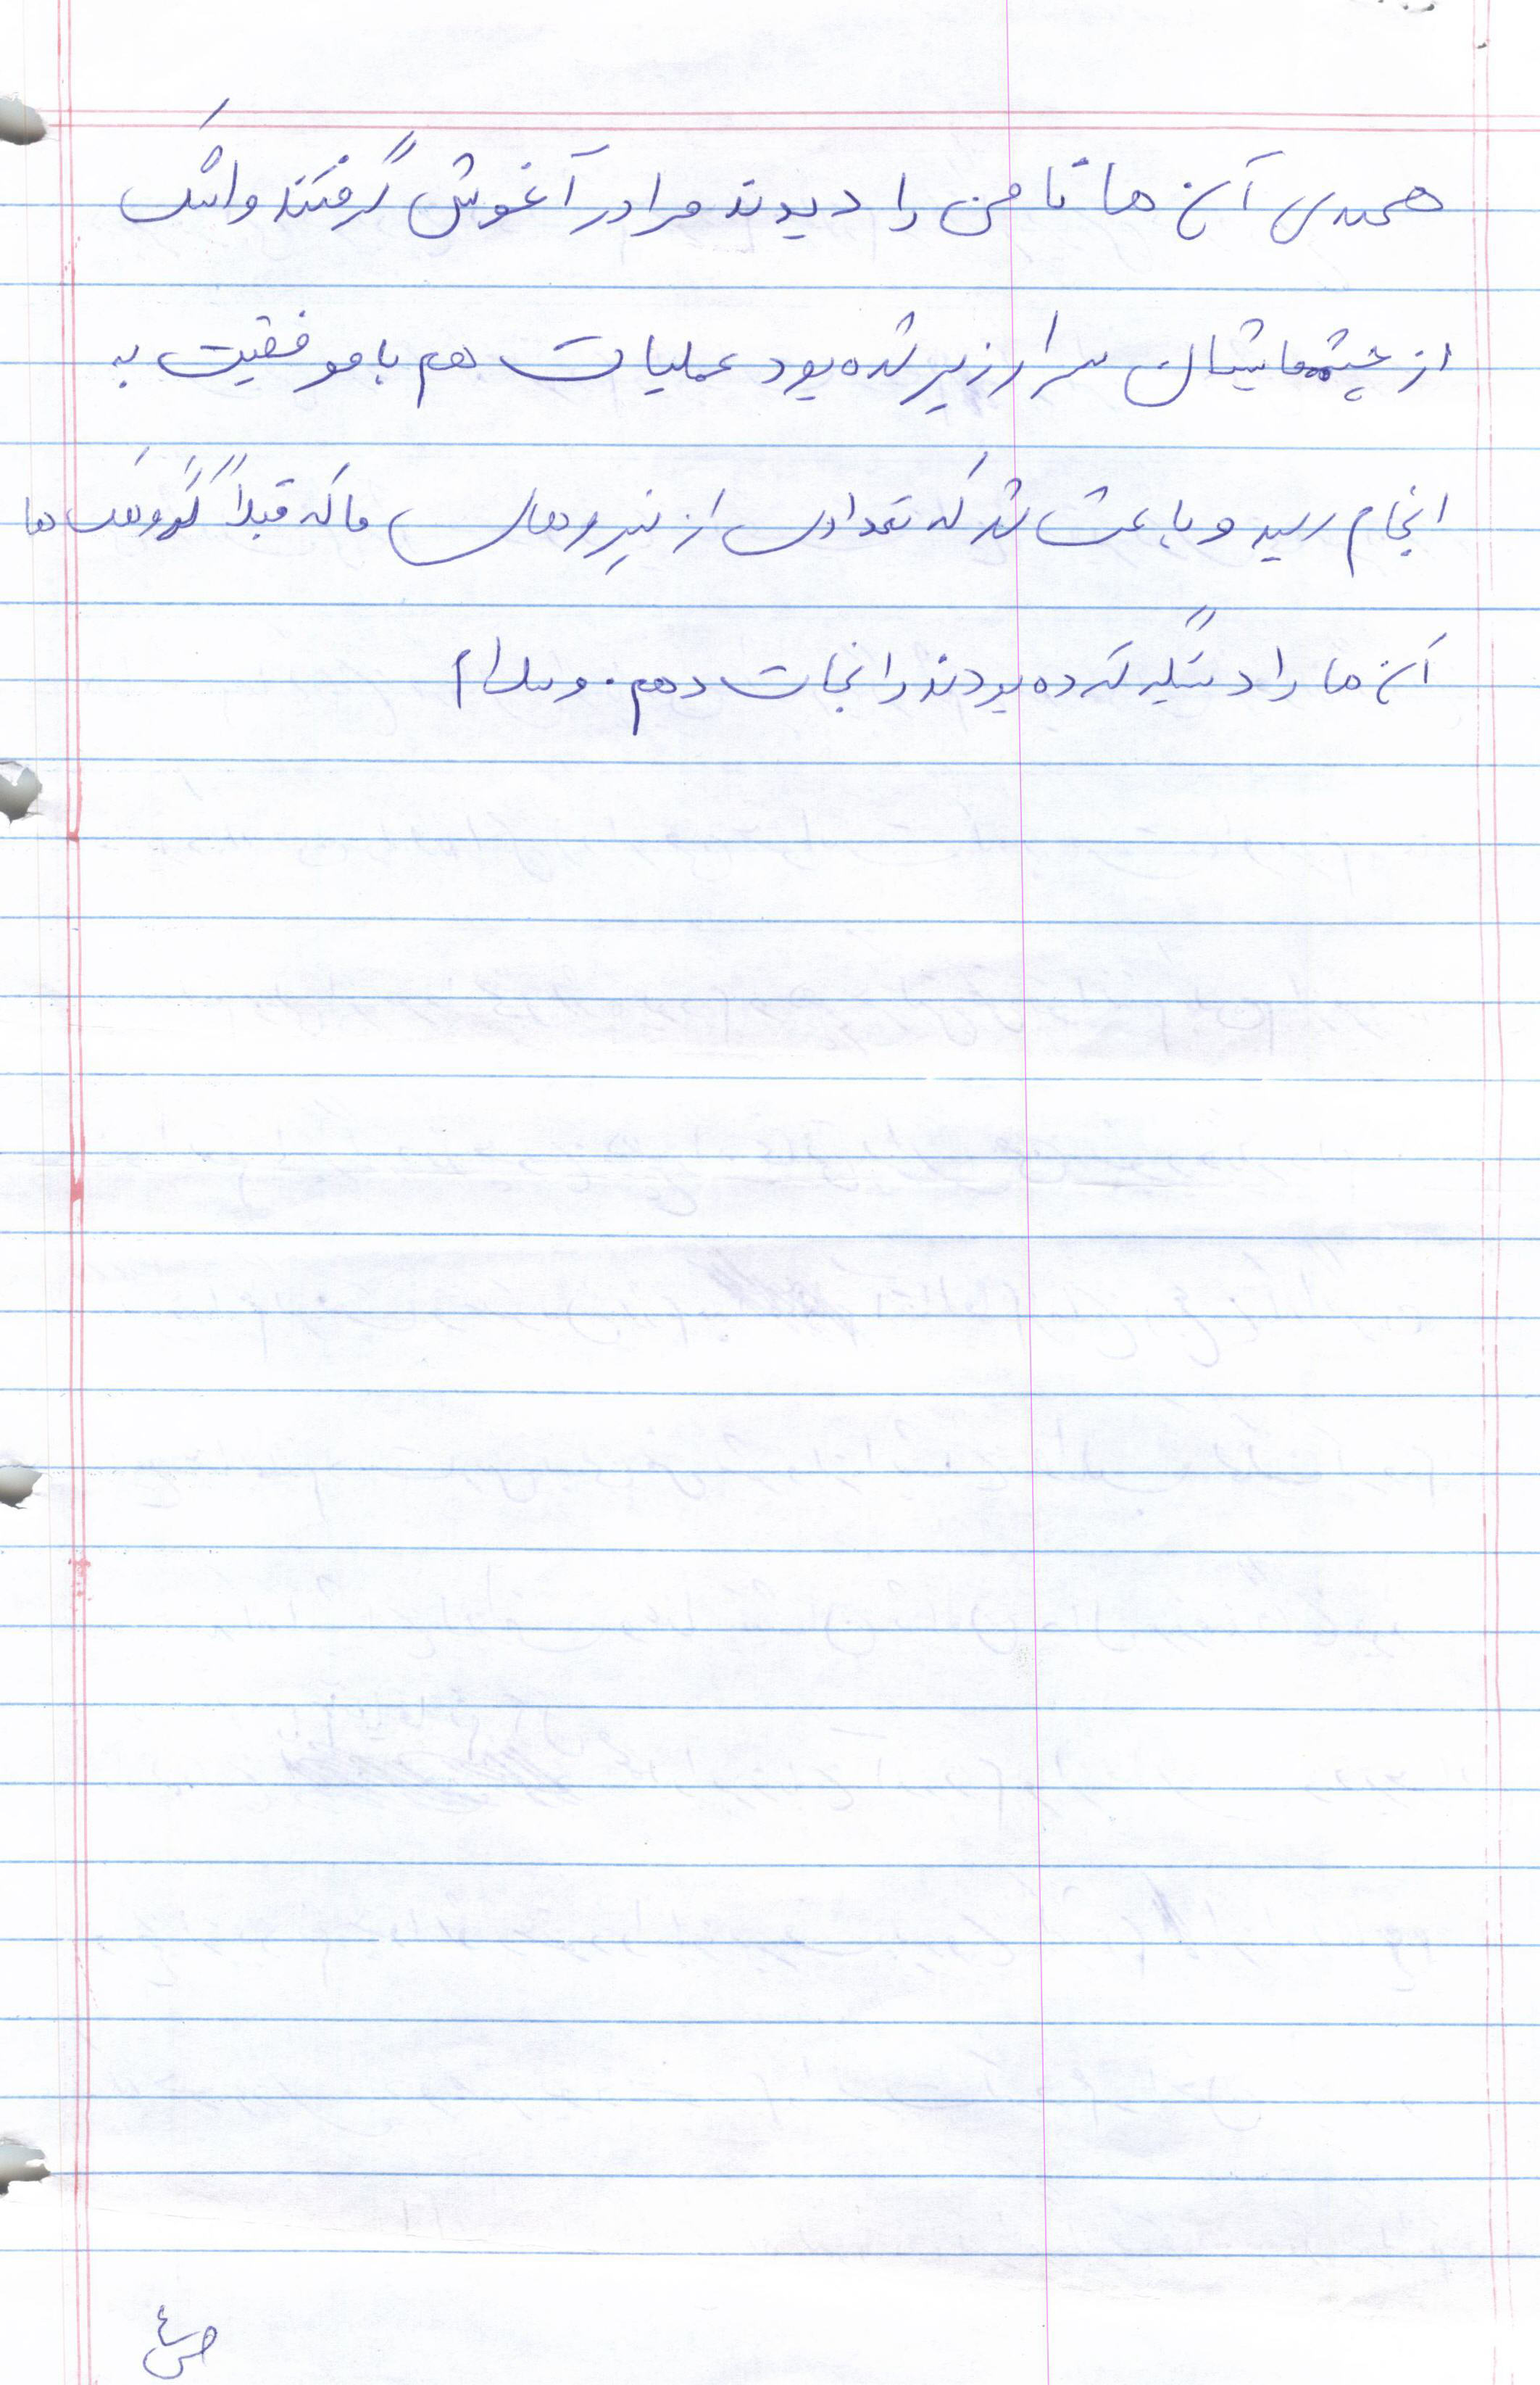 همه‌ی آن ها تا من را دیدند مرا در آغوش گرفتند و اشک
از چشمهایشان سرازیر شده بود عملیات هم با موفقیت به
انجام رسید و باعث شد که تعدادی از نیروهای ما که قبلاً گروهک ها
آن ها را دستگیر کرده بودند را نجات دهم. والسلام
ص۴